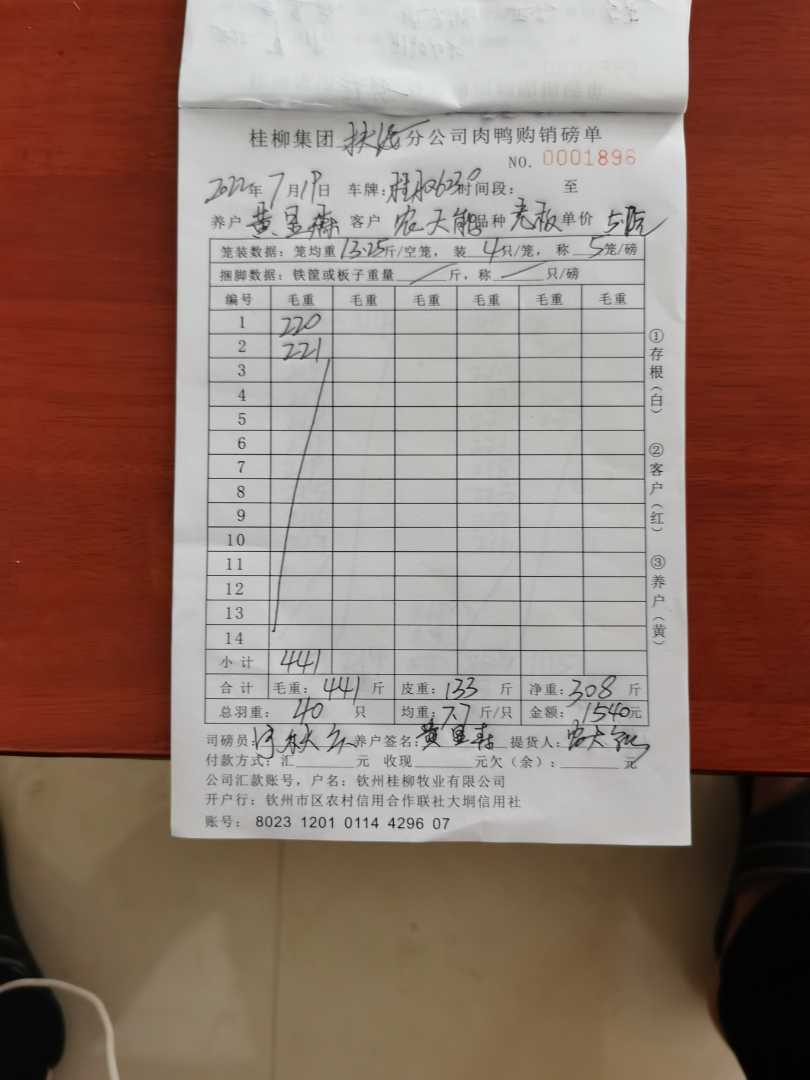 桂柳集团 分公司肉鸭购销磅单
NO. 0001896
2022年7月19日 车牌: 时间段: 至
养户 黄 客户 农大 品种 老板 单价 5.
笼装数据: 笼均重 13.25斤/空笼, 装 4只/笼, 称 5笼/磅
捆脚数据: 铁筐或板子重量 斤, 称 只/磅
编号 毛重 毛重 毛重 毛重 毛重 毛重
1 220
2 221
3
4
5
6
7
8
9
10
11
12
13
14
小计 441
合计 毛重: 441 斤 皮重: 133 斤 净重: 308 斤
总羽重: 40 只 均重: 7.7 斤/只 金额: 1540元
司磅员: 养户签名: 黄 提货人: 农大
付款方式: 汇 元 收现 元欠(余): 元
公司汇款账号, 户名: 钦州桂柳牧业有限公司
开户行: 钦州市区农村信用合作联社大垌信用社
账号: 8023 1201 0114 4296 07
①存根(白) ②客户(红) ③养户(黄)